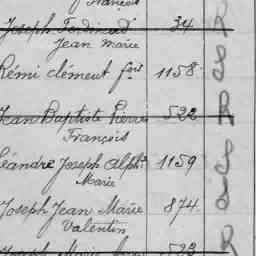 François
Joseph Ferdinand 34 R
Jean Marie
Rémi Clément fois 1158 S
Jean Baptiste Pierre 522 R
François
Léandre Joseph Alph. 1159 S
Marie
Joseph Jean Marie 874 S
Valentin
Joseph Marie 523 R